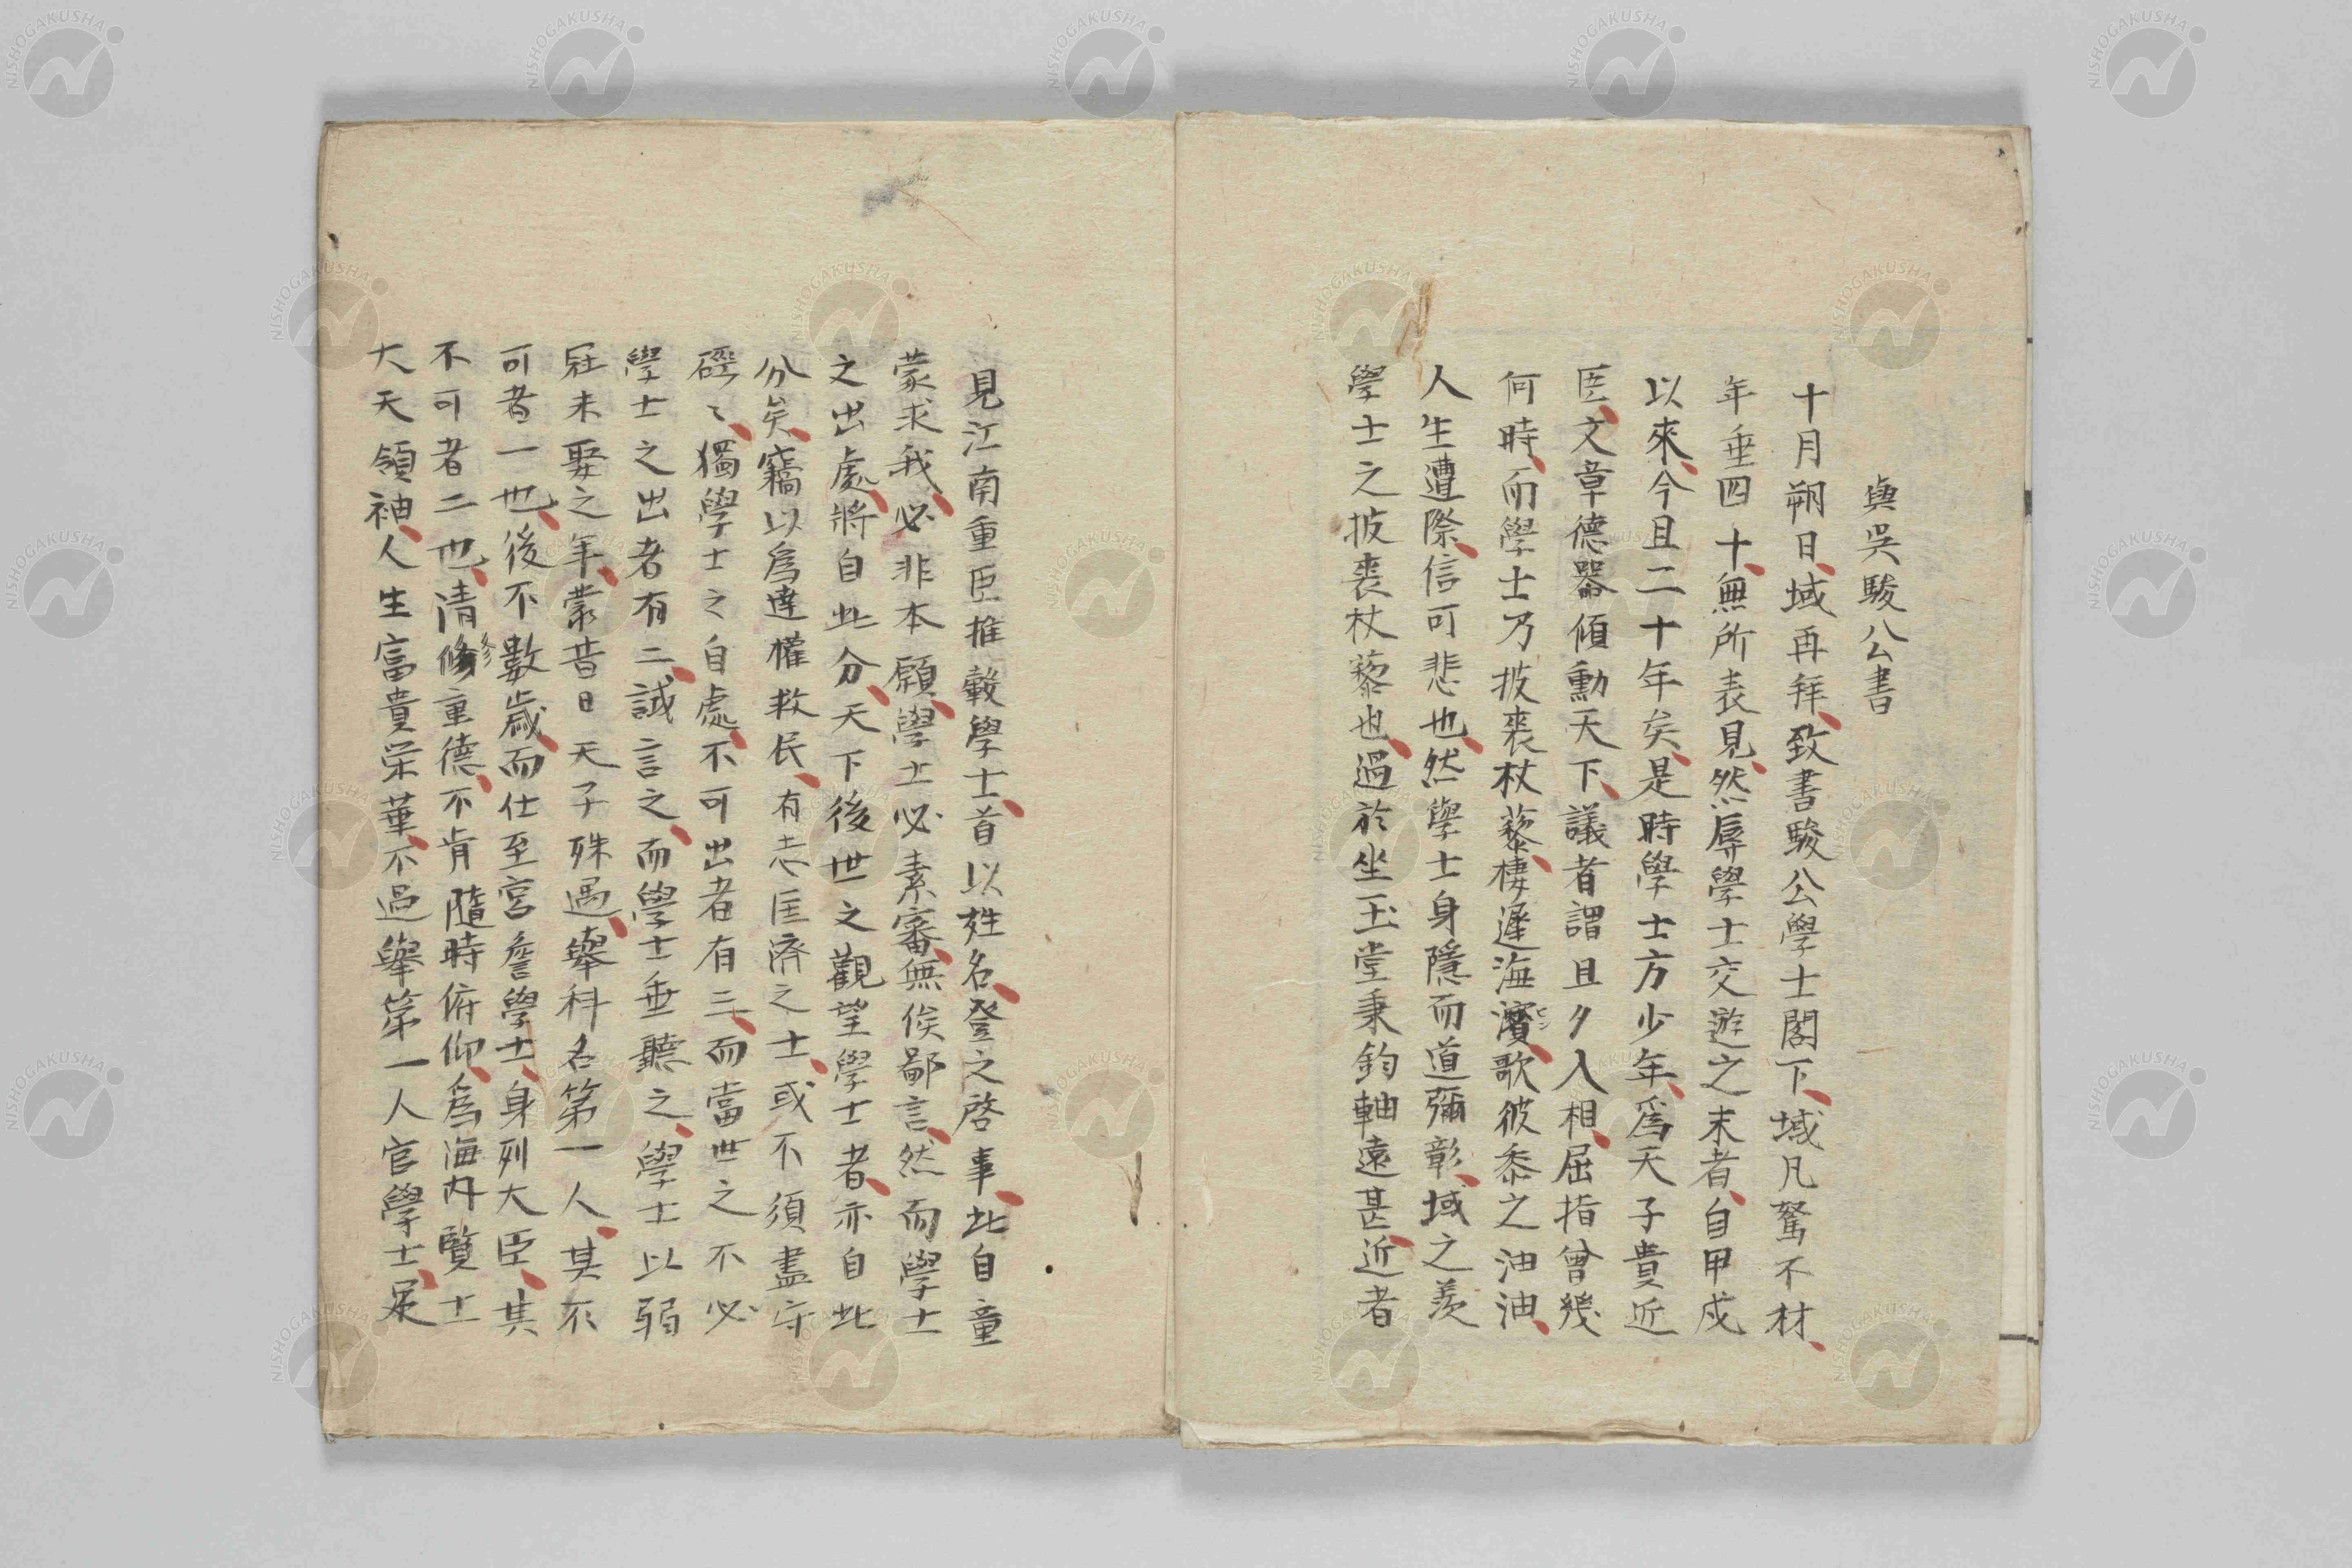 與吳駿公書
十月朔日域再拜致書駿公學士閣下域凡駑不材
年垂四十無所表見然辱學士交遊之末者自甲戍
以來今且二十年矣是時學士方少年爲天子貴近
臣文章德器傾動天下議者謂且夕入相屈指曾幾
何時而學士乃披裘杖藜棲遲海濱歌彼黍之油油
人生遭際信可悲也然學士身隱而道彌彰域之羨
學士之披裘杖藜也過於坐玉堂秉鈞軸遠甚近者
見江南重臣推轂學士首以姓名登之啓事此自童
蒙求我必非本願學士必素審無俟鄙言然而學士
之出處將自此分天下後世之觀望學士者亦自此
分矣竊以爲達權救民有志匡濟之士或不須盡守
硜〻獨學士之自處不可出者有三而當世之不必
學士之出者有二試言之而學士垂聽之學士以弱
冠未娶之年蒙昔日天子殊遇舉科名第一人其不
可者一也後不數歲而仕至宮詹學士身列大臣其
不可者二也清修重德不肯隨時俯仰爲海內賢士
大夫領袖人生富貴荣華不過舉第一人官學士足
NISHOGAKUSHA